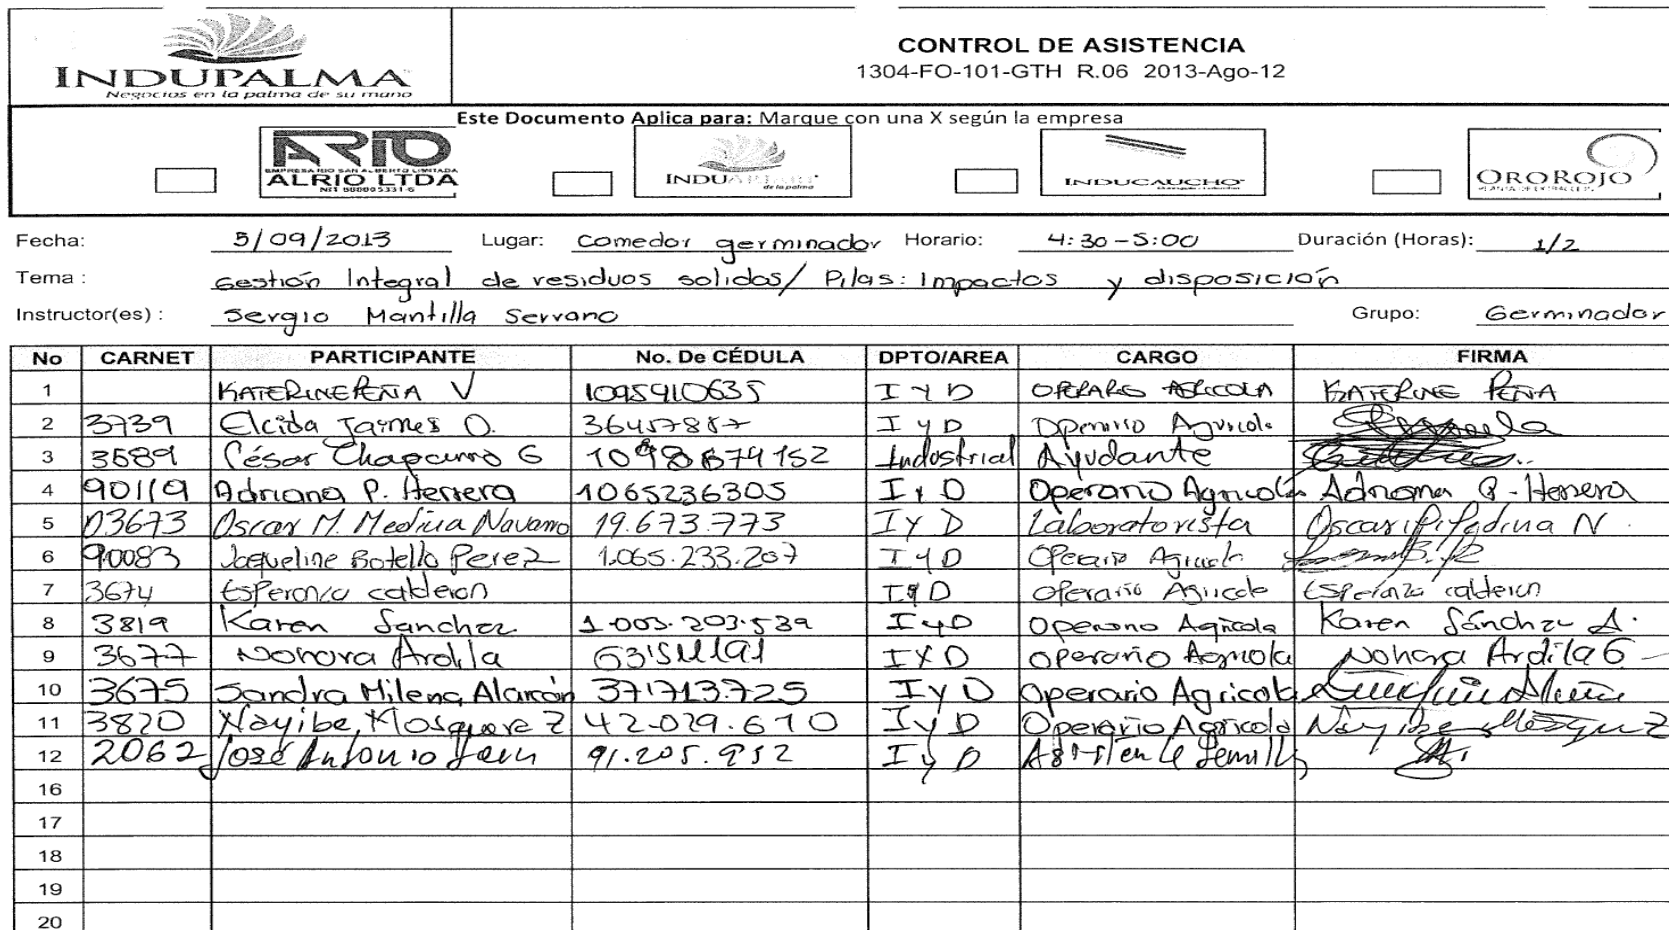 INDUPALMA
Negocios en la palma de su mano
CONTROL DE ASISTENCIA
1304-FO-101-GTH R.06 2013-Ago-12
Este Documento Aplica para: Marque con una X según la empresa
ARIO
EMPRESA RIO SAN ALBERTO LIMITADA
ALRIO LTDA
INDUPALMA
de la palma
INDUCAUCHO
OROROJO
Fecha: 5/09/2013 Lugar: Comedor germinador Horario: 4:30-5:00 Duración (Horas): 1/2
Tema : Gestión Integral de residuos solidos/ Pilas: Impactos y disposición
Instructor(es) : Sergio Mantilla Serrano Grupo: Germinador
No CARNET PARTICIPANTE No. De CÉDULA DPTO/AREA CARGO FIRMA
1 KATERINE PEÑA V 1095910635 I Y D OPERARIO AGRICOLA KATERINE PEÑA
2 3739 Elcida Jaimes O. I y D Operario Agricola
3 3589 César Chaparro G Industrial Ayudante
4 90119 Adriana P. Herrera 1065236305 I y D Operario Agricola Adriana P. Herrera
5 03673 Oscar M. Medina Navarro 19.673.773 I y D Laboratorista Oscar Medina N.
6 90083 Jaqueline Botello Perez 1.065.233.207 I y D Operario Agricola
7 3674 Esperanza calderon I y D Operario Agricola Esperanza calderon
8 3819 Karen Sanchez 1.003.203.539 I y D Operario Agricola Karen Sánchez A.
9 3677 Nohora Ardila I y D Operario Agricola Nohora Ardila G
10 3675 Sandra Milena Alarcón 37'713.725 I y D Operario Agricola
11 3820 Nayibe Mosquera Z 42.029.610 I y D Operario Agricola Nayibe Mosquera Z
12 2062 José Antonio 91.205.952 I y D Asistente Semilla
16
17
18
19
20